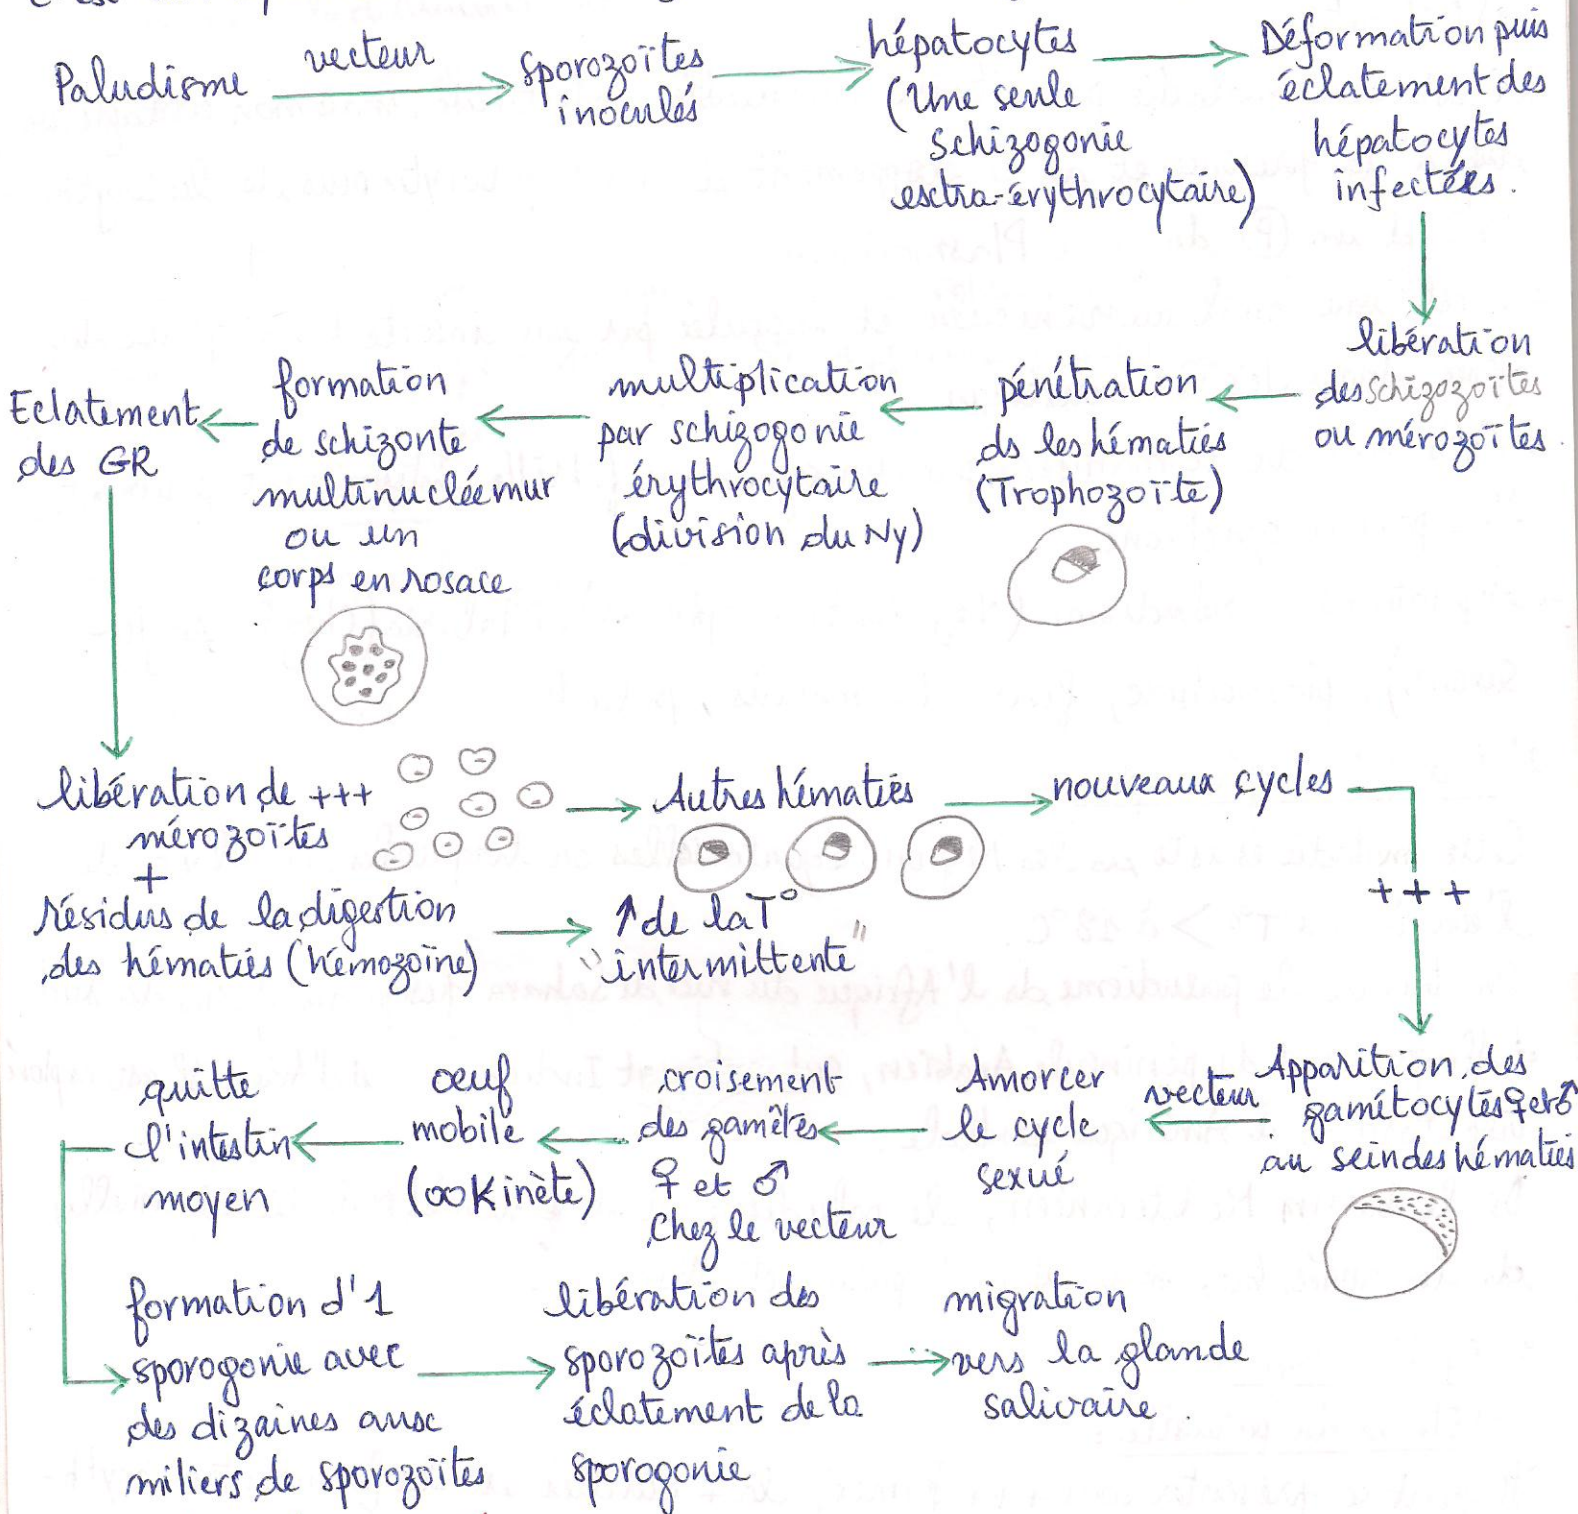 Paludisme
vecteur
sporozoïtes
inoculés
hépatocytes
(Une seule
Schizogonie
esctra-érythrocytaire)
Déformation puis
éclatement des
hépatocytes
infectées.
libération
des schizozoïtes
ou mérozoïtes.
pénétration
ds les hématies
(Trophozoïte)
multiplication
par schizogonie
érythrocytaire
(division du Ny)
formation
de schizonte
multinucléé mur
ou un
corps en rosace
Eclatement
des GR
libération de +++
mérozoïtes
+
résidus de la digestion
des hématies (hémozoïne)
↑ de la T°
"intermittente"
Autres hématies
nouveaux cycles
+++
Apparition des
gamítocytes ♀ et ♂
au sein des hématies
vecteur
Amorcer
le cycle
sexué
croisement
des gamètes
♀ et ♂
chez le vecteur
œuf
mobile
(ooKinète)
quitte
l'intestin
moyen
formation d'1
sporogonie avec
des dizaines ausc
miliers de sporozoïtes
libération des
sporozoïtes après
éclatement de la
sporogonie
migration
vers la glande
salivaire.